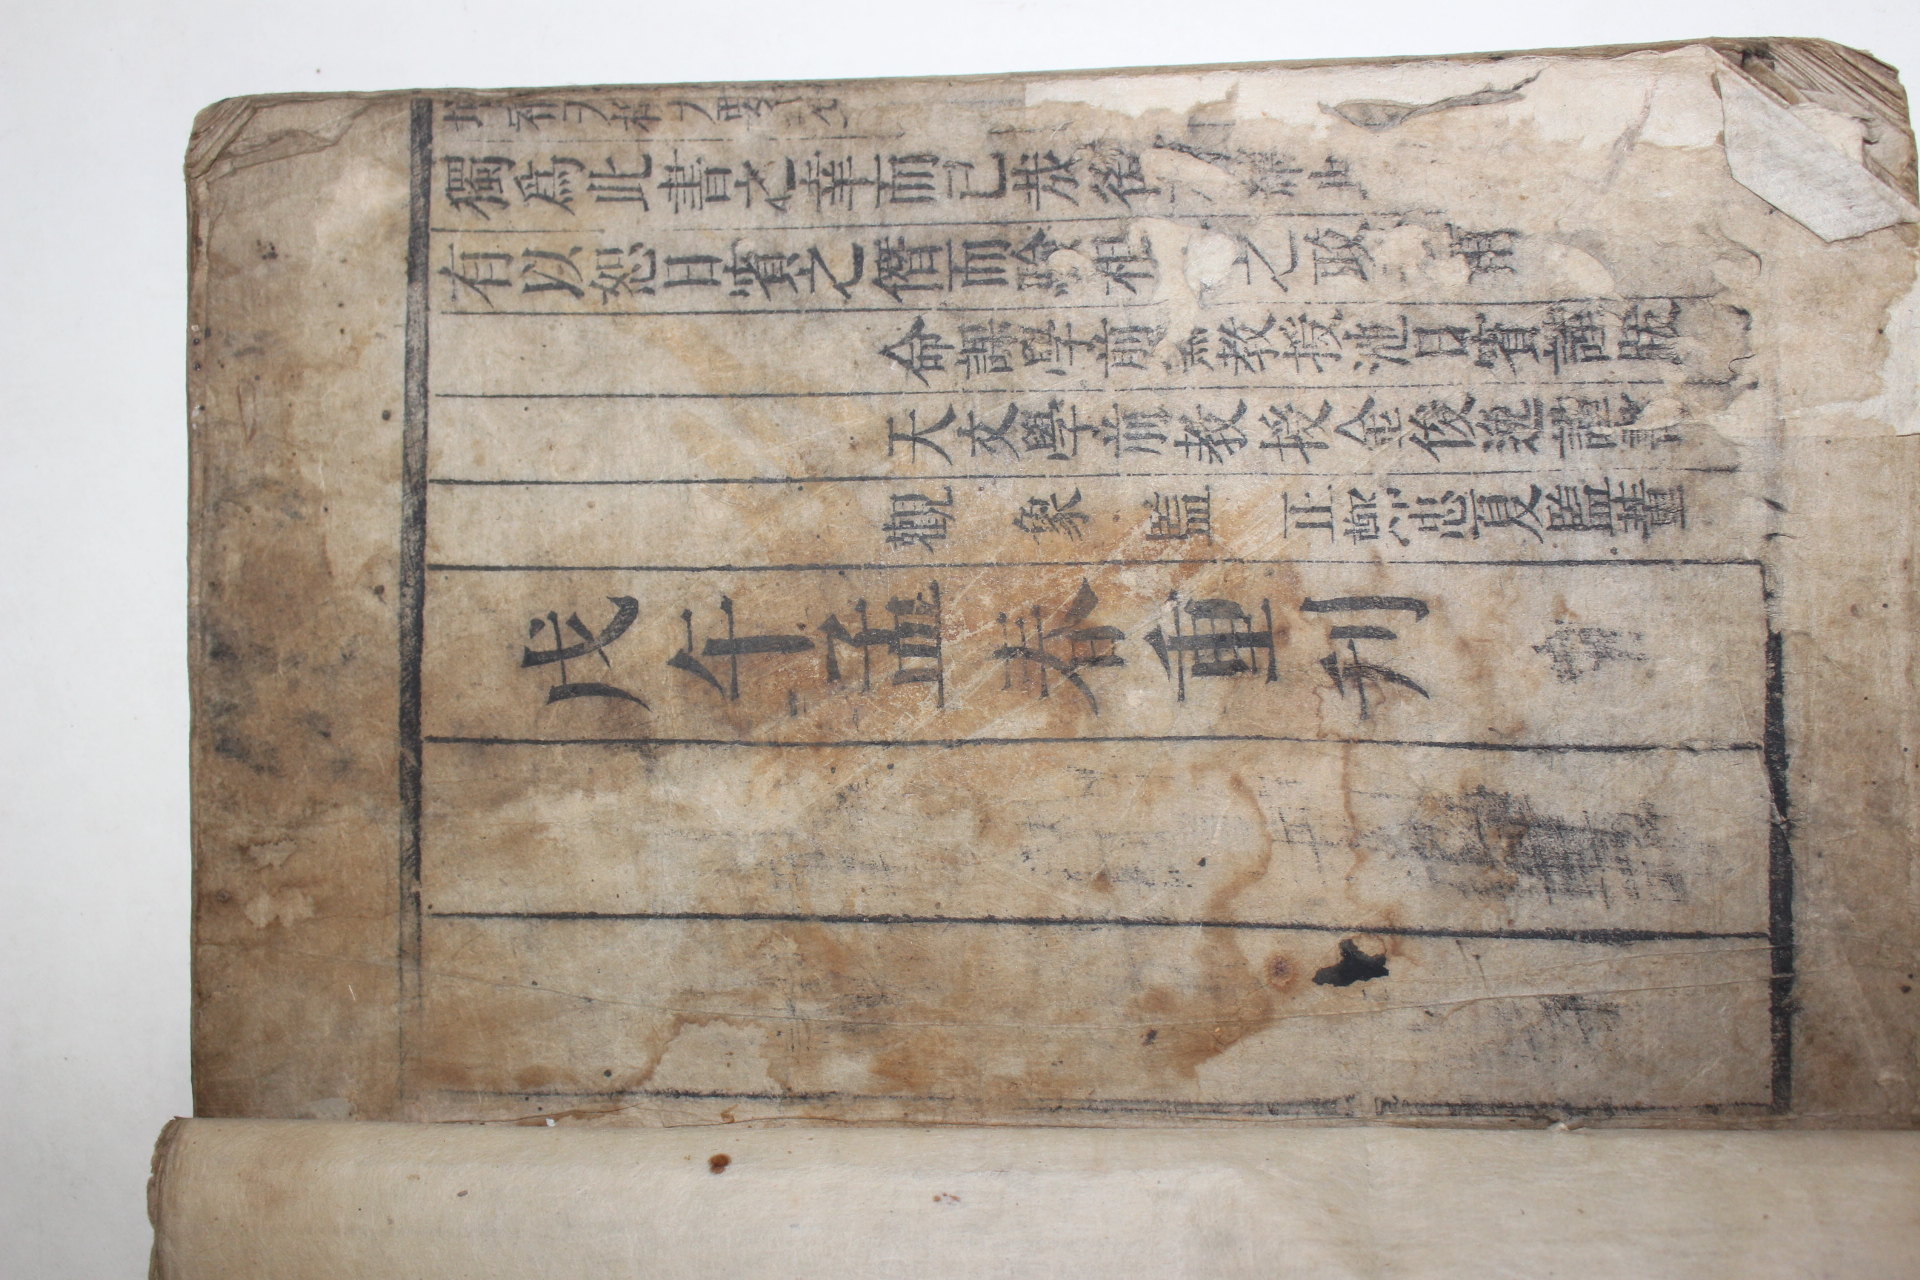 增補天機大要
獨爲此書之幸而已哉後
有以恕日賓之僭而
之政
命課學前教授池日賓謹跋
天文學前教授金俊逸謹書
觀象監正鄭忠夏監董
戊午孟春重刊